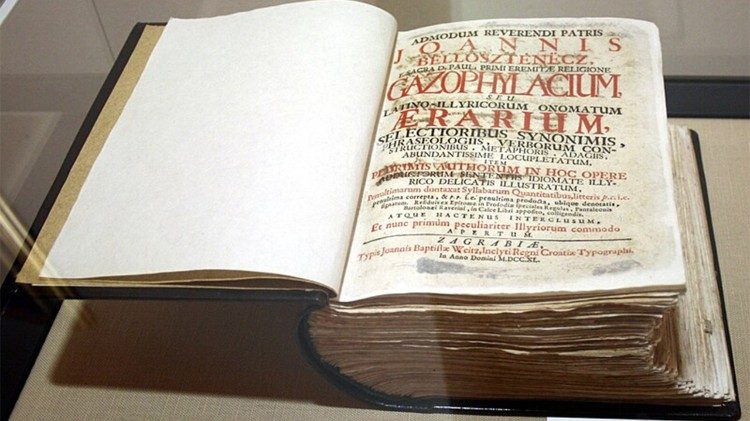 ADMODUM REVERENDI PATRIS
JOANNIS
BELLOSZTENËCZ,
E SACRA D. PAUL, PRIMI EREMITÆ RELIGIONE
GAZOPHYLACIUM,
SEU
LATINO-ILLYRICORUM ONOMATUM
ÆRARIUM,
SELECTIORIBUS SYNONIMIS,
PHRASEOLOGIIS, VERBORUM CON-
STRUCTIONIBUS, METAPHORIS, ADAGIIS,
ABUNDANTISSIME LOCUPLETATUM,
ITEM
PLURIMIS AUTHORUM IN HOC OPERE
ADDUCTORUM SENTENTIIS IDIOMATE ILLY-
RICO DELICATIS ILLUSTRATUM,
Penultimarum duntaxat Syllabarum Quantitatibus, litteris p. c. i. e.
penultima correpta, & p. p. i. e. penultima producta, ubique denotatis,
ATQUE HACTENUS INTERCLUSUM,
Et nunc primum peculiariter Illyriorum commodo
APERTUM.
ZAGRABIÆ,
Typis Joannis Baptistæ Weitz, Inclyti Regni Croatiæ Typographi.
In Anno Domini M.DCC.XL.